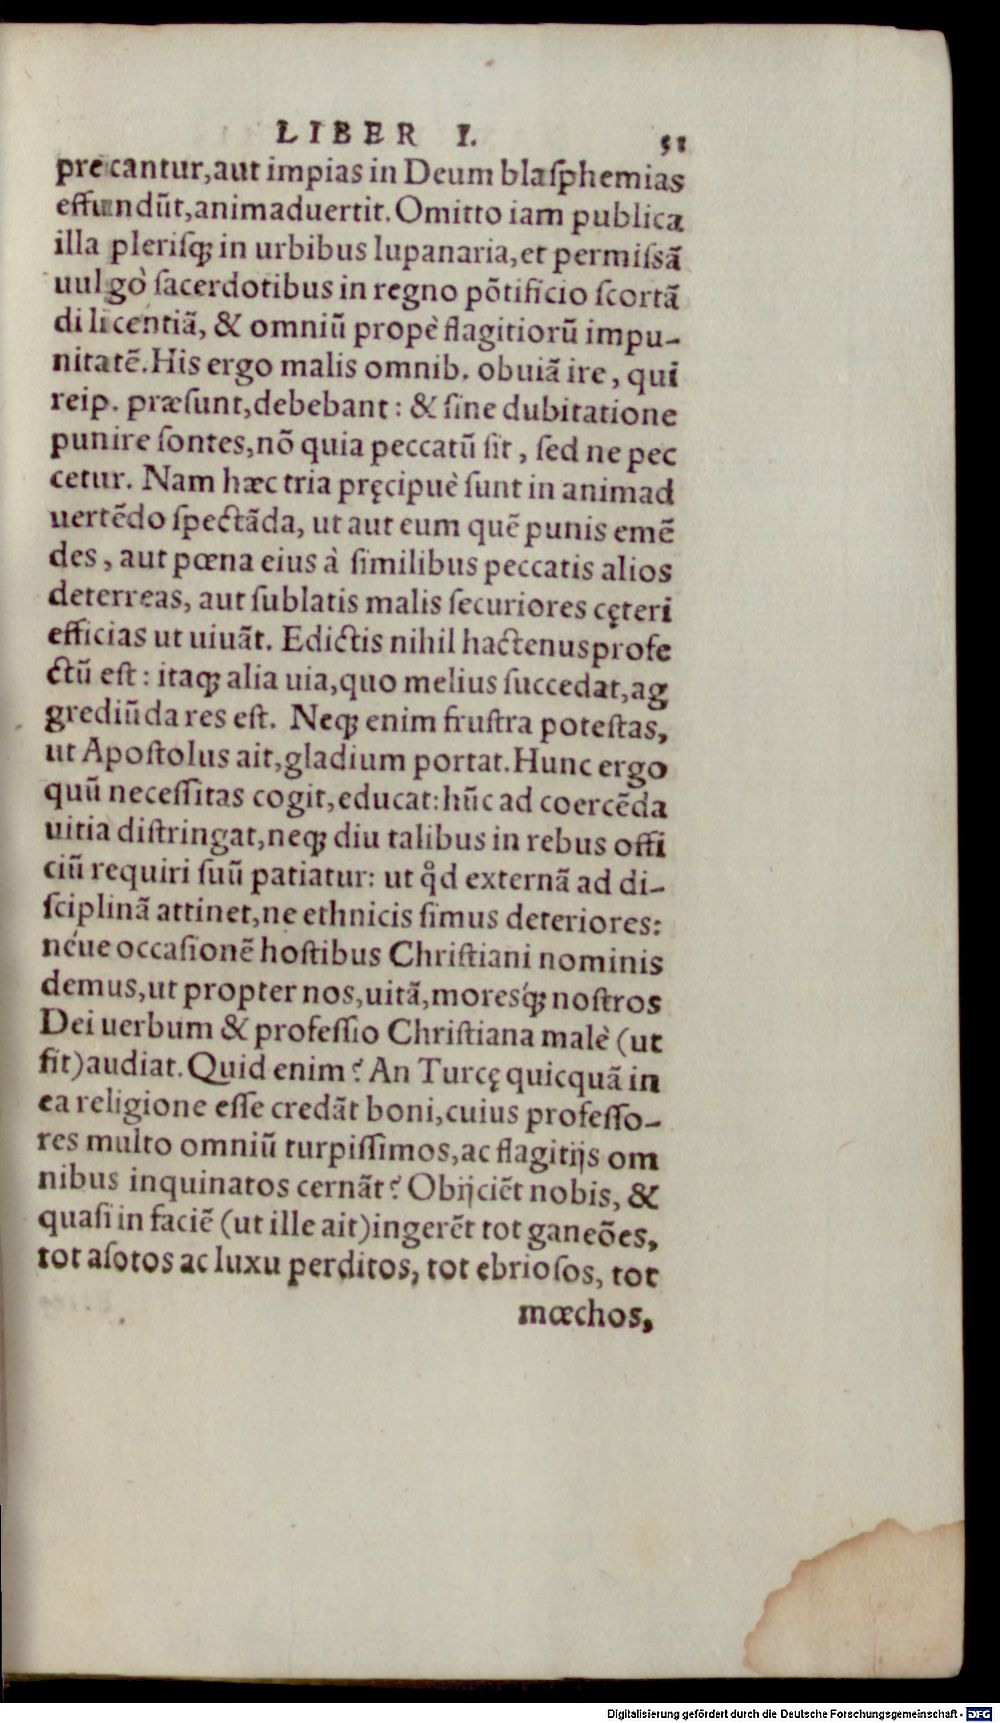 LIBER I. 51
precantur,aut impias in Deum blaſphemias
effundũt,animaduertit. Omitto iam publica
illa pleriſq; in urbibus lupanaria,et permiſsã
uulgò ſacerdotibus in regno põtificio ſcortã
di licentiã, & omniũ propè flagitiorũ impu-
nitatẽ.His ergo malis omnib. obuiã ire, qui
reip. præſunt,debebant: & ſine dubitatione
punire ſontes,nõ quia peccatũ ſit, ſed ne pec
cetur. Nam hæc tria pręcipuè ſunt in animad
uertẽdo ſpectãda, ut aut eum quẽ punis emẽ
des, aut pœna eius à ſimilibus peccatis alios
deterreas, aut ſublatis malis ſecuriores cęteri
efficias ut uiuãt. Edictis nihil hactenusprofe
ctũ eſt: itaq; alia uia,quo melius ſuccedat,ag
grediũda res eſt. Neq; enim fruſtra poteſtas,
ut Apoſtolus ait,gladium portat.Hunc ergo
quũ neceſſitas cogit,educat:hũc ad coercẽda
uitia diſtringat,neq; diu talibus in rebus offi
ciũ requiri ſuũ patiatur: ut qd̊ externã ad di-
ſciplinã attinet,ne ethnicis ſimus deteriores:
néue occaſionẽ hoſtibus Chriſtiani nominis
demus,ut propter nos,uitã,moresq́; noſtros
Dei uerbum & profeſſio Chriſtiana malè (ut
fit)audiat. Quid enim? An Turcę quicquã in
ea religione eſſe credãt boni,cuius profeſſo-
res multo omniũ turpiſſimos,ac flagitijs om
nibus inquinatos cernãt? Obijciẽt nobis, &
quaſi in faciẽ (ut ille ait)ingerẽt tot ganeões,
tot aſotos ac luxu perditos, tot ebrioſos, tot
mœchos,
Digitalisierung gefördert durch die Deutsche Forschungsgemeinschaft - DFG